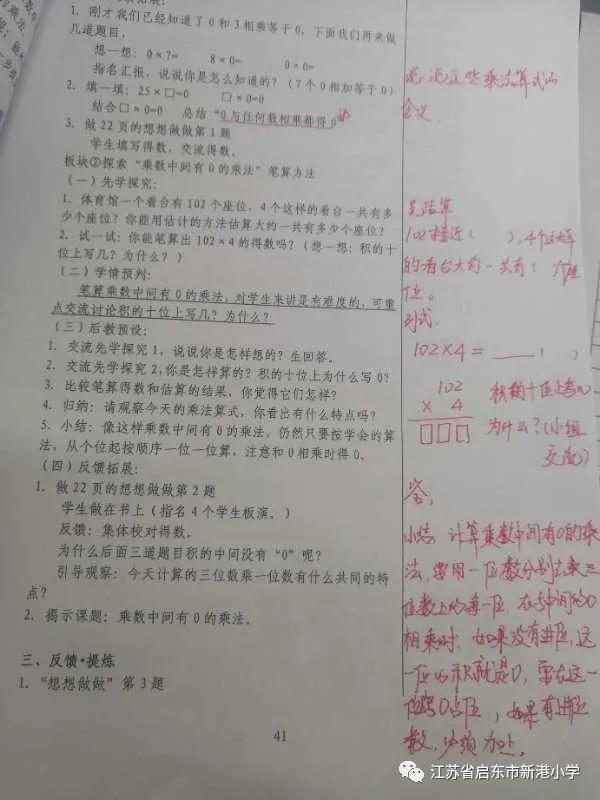 1. 刚才我们已经知道了0和3相乘等于0,下面我们再来做
几道题目,
想一想:0×7= 8×0= 0×0=
指名汇报,说说你是怎么知道的?(7个0相加等于0)
2. 填一填:25×□=0 □×0=0
结合□×0=0 总结“0与任何数相乘都得0”
3. 做22页的想想做做第1题
学生填写得数,交流得数。
板块②探索“乘数中间有0的乘法”笔算方法
(一)先学探究:
1. 体育馆一个看台有102个座位,4个这样的看台一共有多
少个座位?你能用估计的方法估算大约一共有多少个座位?
2. 试一试:你能笔算出102×4的得数吗?(想一想:积的十
位上写几?为什么?)
(二)学情预判:
笔算乘数中间有0的乘法,对学生来讲是有难度的,可重
点交流讨论积的十位上写几?为什么?
(三)后教预设:
1. 交流先学探究1,说说你是怎样想的?生回答。
2. 交流先学探究2,你是怎样算的?积的十位上为什么写0?
3. 比较笔算得数和估算的结果,你觉得它们怎样?
4. 归纳:请观察今天的乘法算式,你看出有什么特点吗?
5. 小结:像这样乘数中间有0的乘法,仍然只要按学会的算
法,从个位起按顺序一位一位算,注意和0相乘时得0。
(四)反馈拓展:
1. 做22页的想想做做第2题
学生做在书上(指名4个学生板演。)
反馈:集体校对得数。
为什么后面三道题目积的中间没有“0”呢?
引导观察:今天计算的三位数乘一位数有什么共同的特
点?
2. 揭示课题:乘数中间有0的乘法。
三、反馈·提炼
1. “想想做做”第3题
41
说说这些乘法算式的
含义.
先估算
102接近( ),4个这样
的看台大约一共有( )个座
位。
列式
102×4=____( )
102
× 4
□□□
积的十位上写几
为什么?(小组
交流)
答:
小结:计算乘数中间有0的乘
法,要用一位数分别去乘三
位数上的每一位,在与中间的0
相乘时,如果没有进位,这
一位的积就是0,要在这一
位写0占位,如果有进位
数,必须加上。
江苏省启东市新港小学